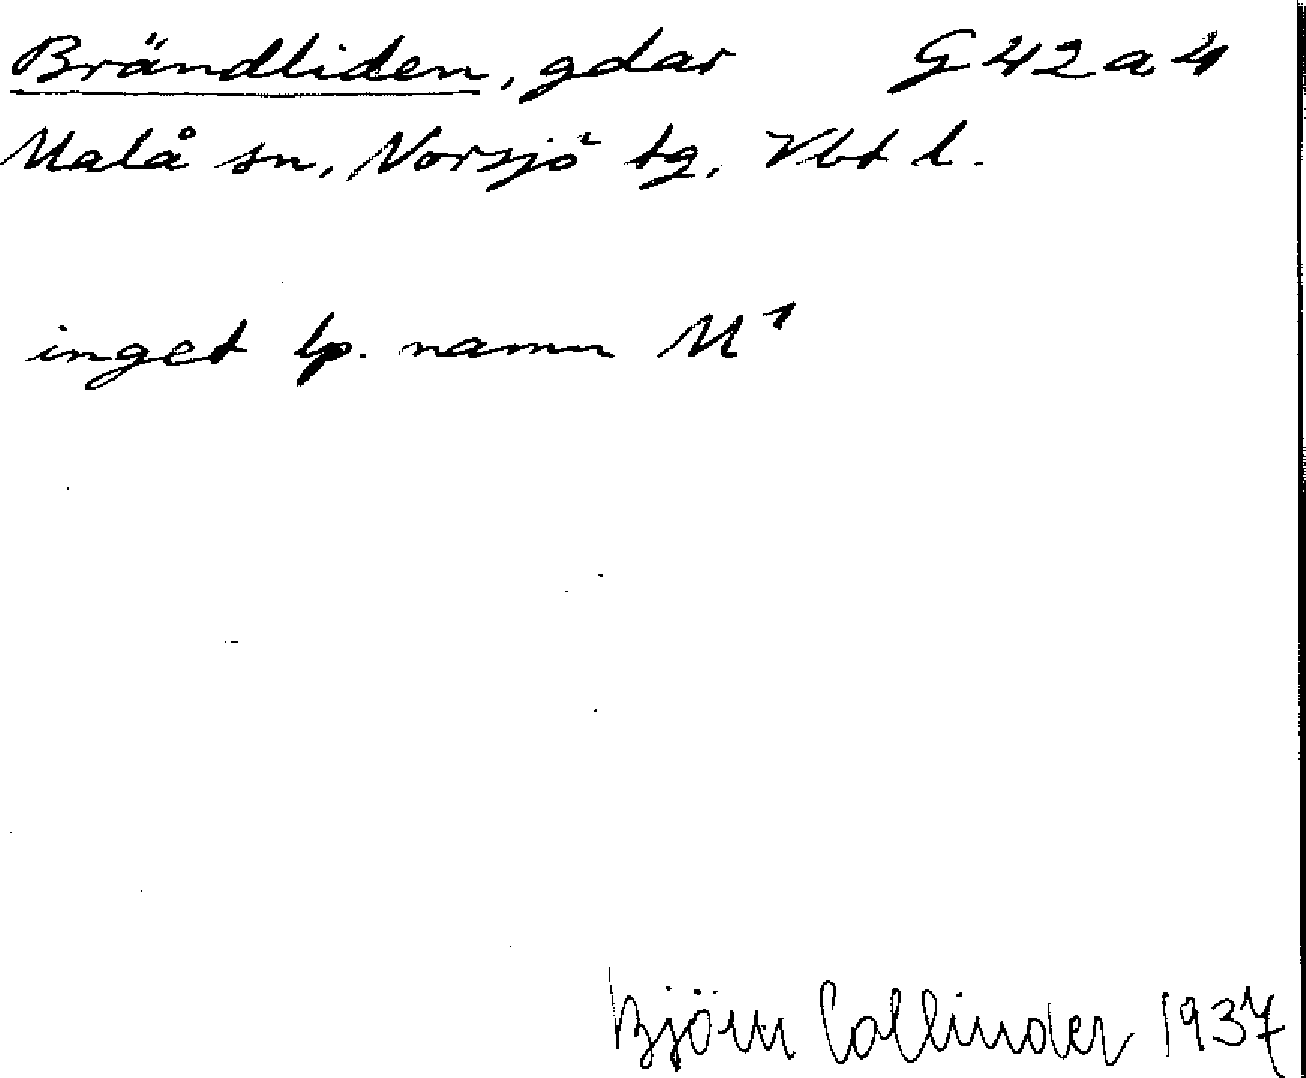 Brändliden, gdar G 42 a 4
Malå sn, Norsjö tg, Vbt l.
inget lp. namn M¹
Björn Collinder 1937